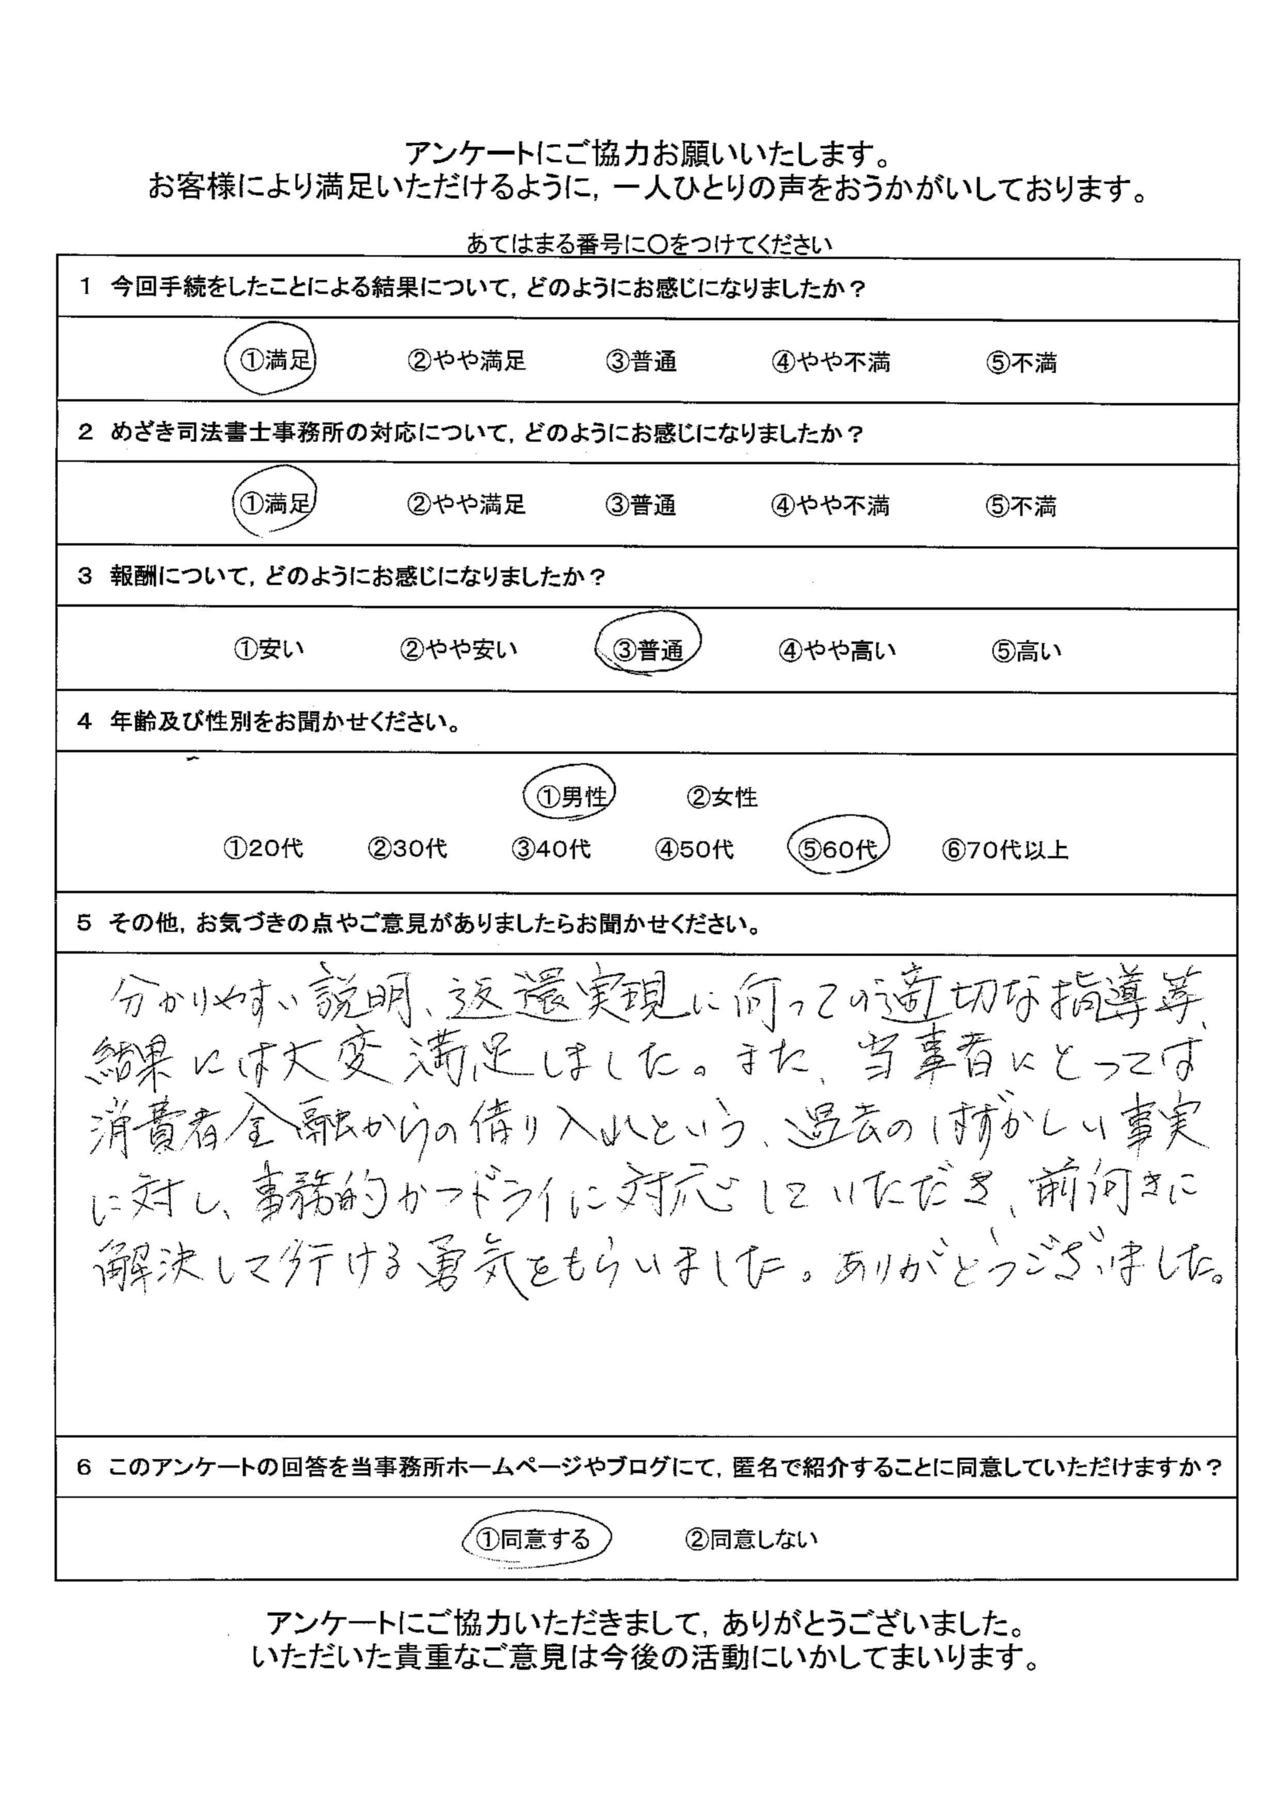 アンケートにご協力お願いいたします。
お客様により満足いただけるように，一人ひとりの声をおうかがいしております。
あてはまる番号に〇をつけてください
1 今回手続をしたことによる結果について，どのようにお感じになりましたか？
①満足 ②やや満足 ③普通 ④やや不満 ⑤不満
2 めざき司法書士事務所の対応について，どのようにお感じになりましたか？
①満足 ②やや満足 ③普通 ④やや不満 ⑤不満
3 報酬について，どのようにお感じになりましたか？
①安い ②やや安い ③普通 ④やや高い ⑤高い
4 年齢及び性別をお聞かせください。
①男性 ②女性
①20代 ②30代 ③40代 ④50代 ⑤60代 ⑥70代以上
5 その他，お気づきの点やご意見がありましたらお聞かせください。
分かりやすい説明、返還実現に向っての適切な指導等、
結果には大変満足しました。また、当事者にとっては
消費者金融からの借り入れという、過去のはずかしい事実
に対し、事務的かつドライに対応していただき、前向きに
解決して行ける勇気をもらいました。ありがとうございました。
6 このアンケートの回答を当事務所ホームページやブログにて，匿名で紹介することに同意していただけますか？
①同意する ②同意しない
アンケートにご協力いただきまして，ありがとうございました。
いただいた貴重なご意見は今後の活動にいかしてまいります。